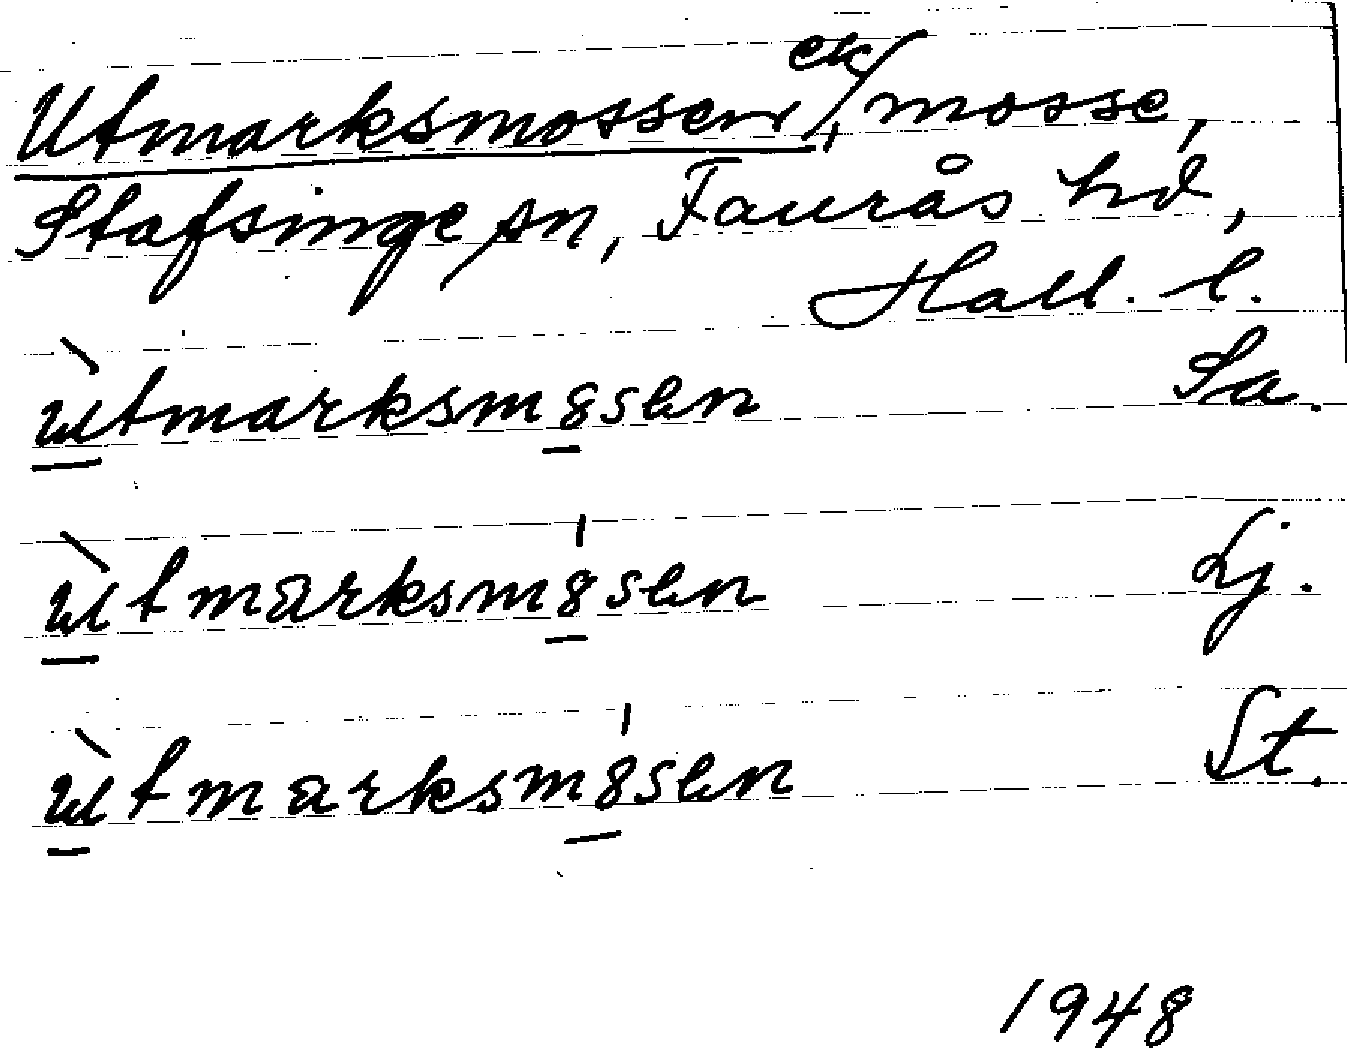 Utmarksmossen ek/, mosse,
Stafsinge sn, Faurås hd,
Hall. l.
ùtmarksm8sen Sa.
ùtmarksm8sen Lj.
ùtmarksm8sen St.
1948